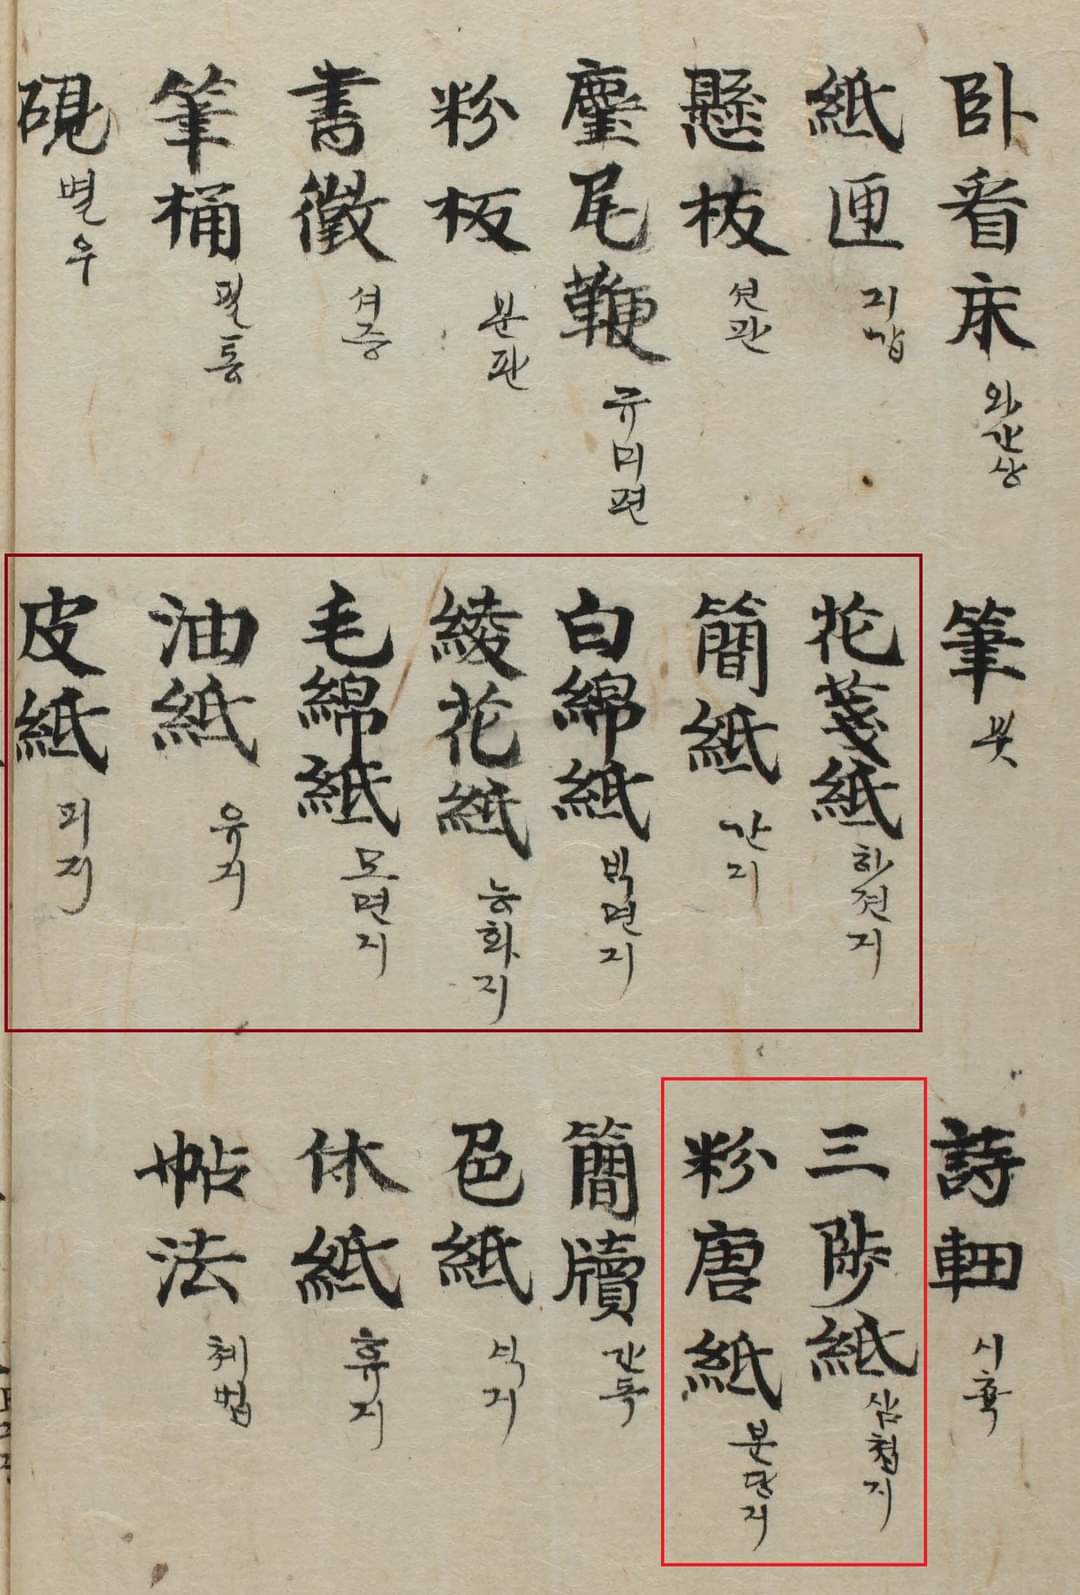 臥看床 와간상
紙匣 지갑
懸板 션판
麈尾鞭 규미편
粉板 분판
書徵 셔증
筆桶 필통
硯 별우
筆 붓
花箋紙 하젼지
簡紙 간지
白綿紙 빅면지
綾花紙 능화지
毛綿紙 모면지
油紙 유지
皮紙 피지
詩軸 시휵
三陟紙 삼쳡지
粉唐紙 분당지
簡牘 간독
色紙 식지
休紙 휴지
帖法 쳬법